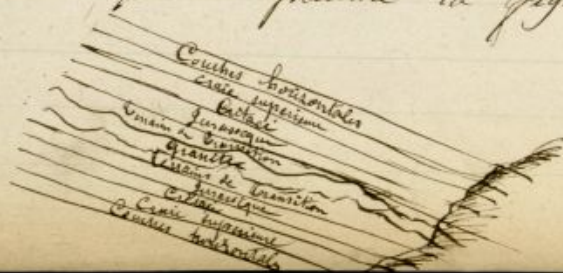 Couches horizontales
craie superieure
Crétacé
Jurassique
Terrains de Transition
Granite
Terrains de Transition
Jurassique
Crétacé
Craie superieure
Couches horizontales